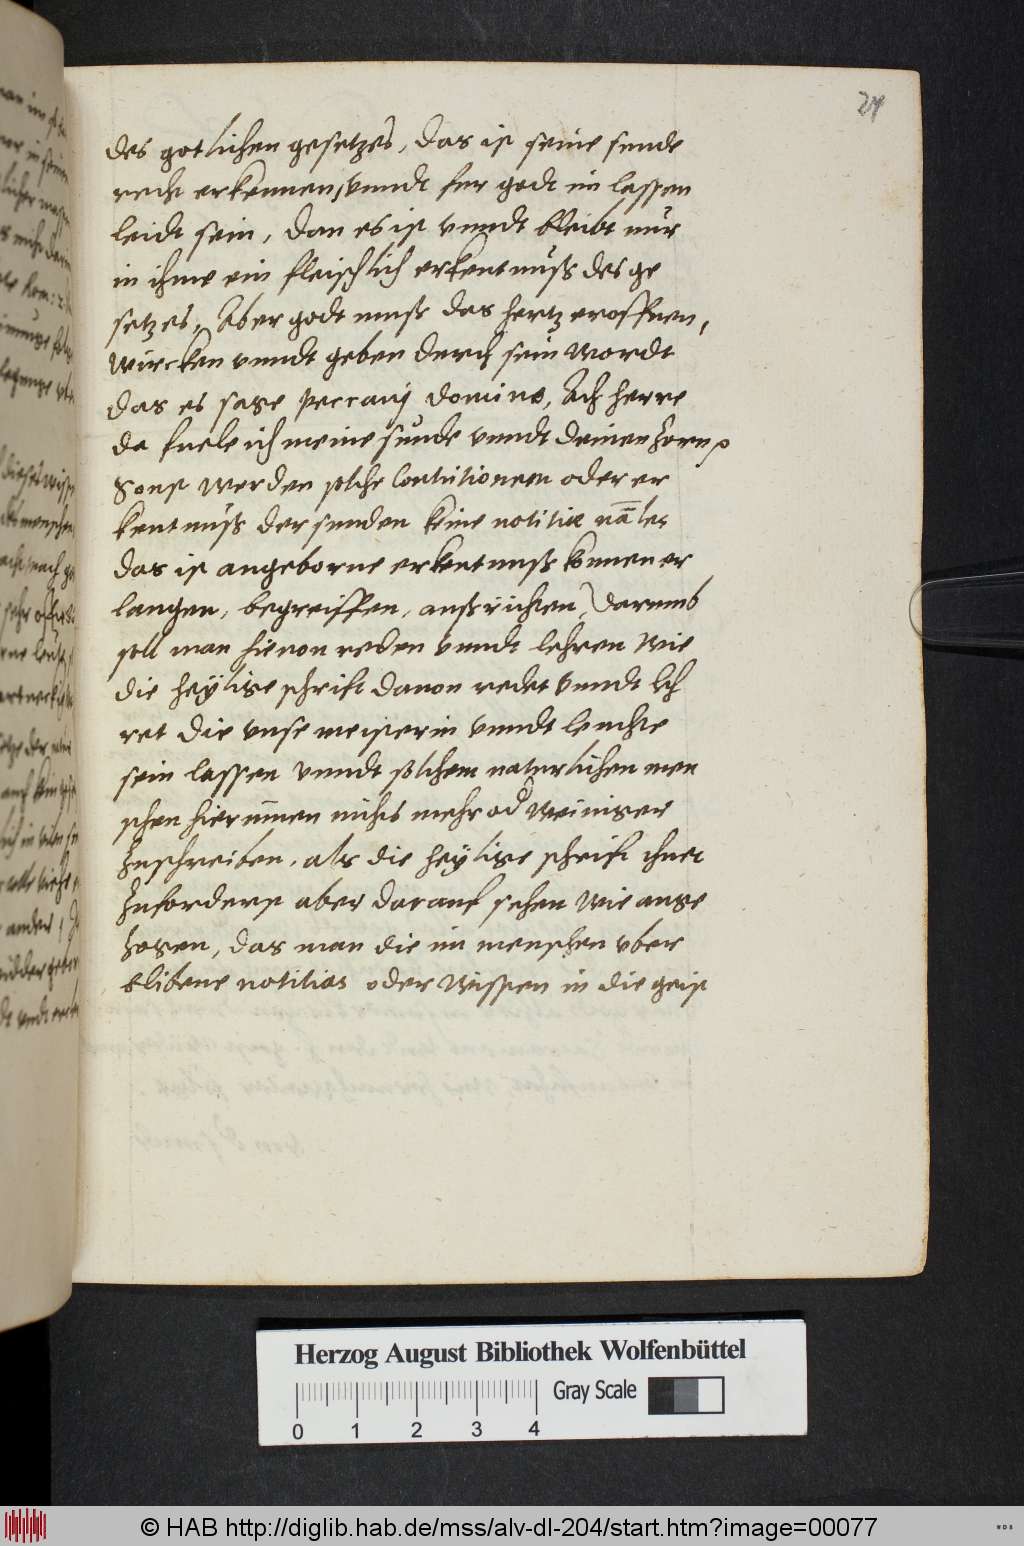 24
des gotlichen gesetzes, das ist seine sunde
recht erkennen, vnndt fer godt im lassen
leidt sein, dan es ist vnndt bleibt nur
in ihme ein fleischlich erkentnuß des ge
setzes, Aber godt muß das hertz eroffnen,
wircken vnndt geben derch sein wordt
das es sage peccavj domino, Ach herre
da fuele ich meine sunde vnndt deinen zorn
Sonst werden solche Contritionem oder er
kentnuß der sunden keine notitiæ nãles
das ist angeborne erkentnuß konnen er
langen, begreiffen, außrichten, darumb
soll man hievon reden vnndt lehren wie
die heÿlige schrift davon redet vnndt leh
ret die vnse meisterin vnndt leuchte
sein lassen vnndt solchem naturlichen men
schen hierinnen nichts mehr od weiniger
zuschreiben, als die heÿlige schrift thuet
zuforderst aber darauf sehen wie ange
zogen, das man die im menschen vber
blibene notitias oder wissen in die geist
Herzog August Bibliothek Wolfenbüttel
Gray Scale
0 1 2 3 4
© HAB http://diglib.hab.de/mss/alv-dl-204/start.htm?image=00077